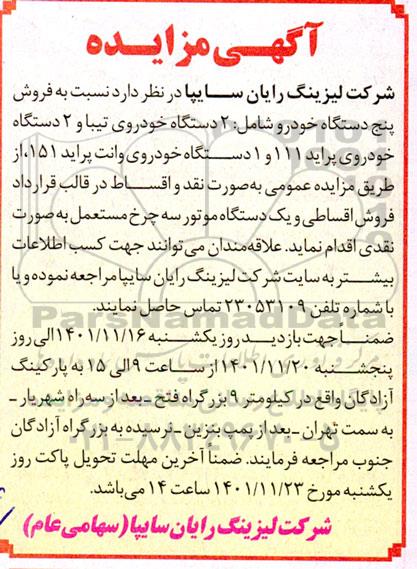 آگهـی مزایـده
شرکت لیزینگ رایان سـایپا در نظر دارد نسبت به فروش
پنج دستگاه خودرو شامل: ۲ دستگاه خودروی تیبا و ۲ دستگاه
خودروی پراید ۱۱۱ و ۱ دستگاه خودروی وانت پراید ۱۵۱، از
طریق مزایده عمومی به‌صورت نقد و اقساط در قالب قرارداد
فروش اقساطی و یک دستگاه موتور سه چرخ مستعمل به صورت
نقدی اقدام نماید. علاقه‌مندان می‌توانند جهت کسب اطلاعات
بیشتر به سایت شرکت لیزینگ رایان سایپا مراجعه نموده و یا
با شماره تلفن ۲۳۰۵۳۱۰۹ تماس حاصل نمایند.
ضمناً جهت بازدید روز یکشنبه ۱۴۰۱/۱۱/۱۶ الی روز
پنجشنبه ۱۴۰۱/۱۱/۲۰ از ساعت ۹ الی ۱۵ به پارکینگ
آزادگان واقع در کیلومتر ۹ بزرگراه فتح - بعد از سه راه شهریار -
به سمت تهران - بعد از پمپ بنزین - نرسیده به بزرگراه آزادگان
جنوب مراجعه فرمایند. ضمناً آخرین مهلت تحویل پاکت روز
یکشنبه مورخ ۱۴۰۱/۱۱/۲۳ ساعت ۱۴ می‌باشد.
شرکت لیزینگ رایان سایپا (سهامی عام)
ParsNamadData
۰۲۱-۸۸۳۴۹۶۷۰-۵